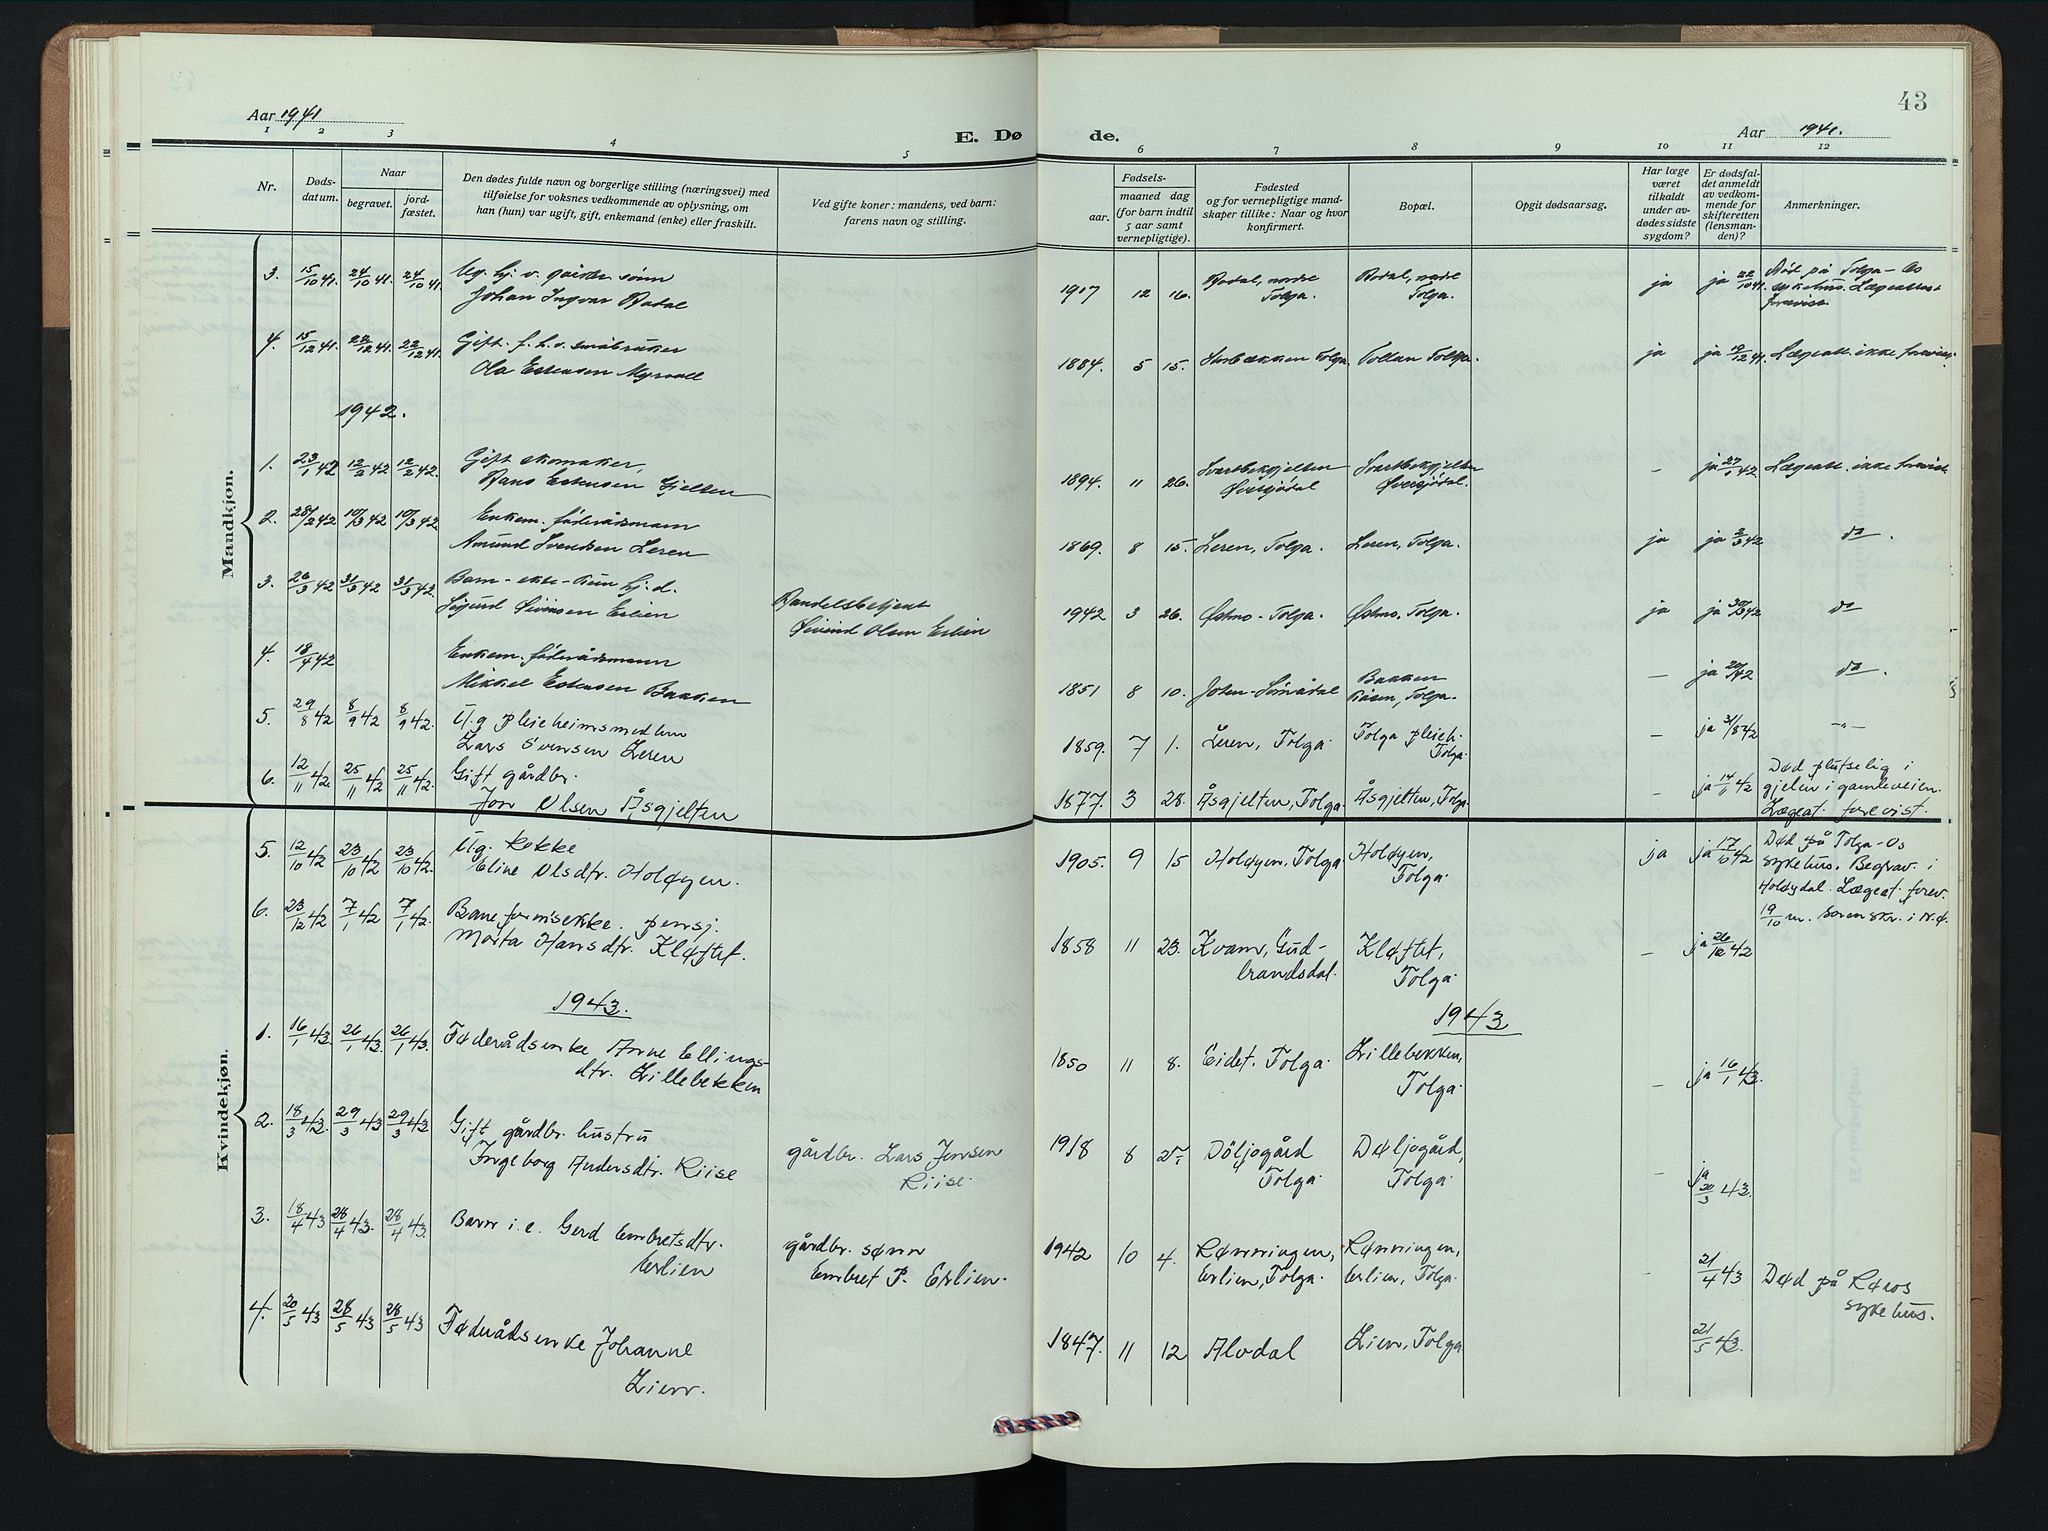 43
Aar 1941
E. Dø
de.
Aar 1941.
1 2 3 4 5 6 7 8 9 10 11 12
Nr.
Døds-
datum.
Naar
begravet.
jord-
fæstet.
Den dødes fulde navn og borgerlige stilling (næringsvei) med
tilføielse for voksnes vedkommende av oplysning, om
han (hun) var ugift, gift, enkemand (enke) eller fraskilt.
Ved gifte koner: mandens, ved barn:
farens navn og stilling.
Fødsels-
aar.
maaned dag
(for barn indtil
5 aar samt
vernepligtige).
Fødested
og for vernepligtige mand-
skaper tillike: Naar og hvor
konfirmert.
Bopæl.
Opgit dødsaarsag.
Har læge
været
tilkaldt
under av-
dødes sidste
sygdom?
Er dødsfal-
det anmeldt
av vedkom-
mende for
skifteretten
(lensman-
den)?
Anmerkninger.
Mandkjøn.
3. 15/10 41. 24/10 41. 24/10 41. Ug. hj. v. sønn
Johan Ingvar Bodal
1917 12 16. Bodal, nordre
Tolga. Bodal, nordre
Tolga. ja ja 22/10 41. Død på Tolga-Os
sykehus. Lægeattest
forevist.
4. 15/12 41. 22/12 41. 22/12 41. Gift. f. h. v. småbruker
Ola Estensen Myrvoll
1884. 5 15. Storbækken Tolga. Tollan Tolga. ja ja 19/12 41. Lægeatt. ikke forevist.
1942.
1. 23/1 42 12/2 42 12/2 42. Gift skomaker,
Hans Estensen Gjelten
1894. 11 26. Svartbekgjelten
Øversjødal Svartbekgjelten
Øversjødal. – ja 27/1 42. Lægeatt. ikke forevist
2. 28/2 42 10/3 42 10/3 42 Enkem. føderådsmann
Amund Svendsen Leren
1869. 8 15. Leren, Tolga. Leren, Tolga. ja ja 2/3 42 do.
3. 26/3 42 31/3 42 31/3 42. Barn - ekte - kun hj. d.
Sigurd Øivinsen Erlien
Handelsbetjent
Øivind Olsen Erlien
1942 3 26. Østmo - Tolga. Østmo, Tolga. ja ja 30/3 42 do
4. 18/4 42 Enkem. føderådsmann
Mikkel Estensen Bakken
1851 8 10. Bakken
Tolga. – ja 20/4 42 do.
5. 29/8 42 8/9 42 8/9 42. Ug pleieheimsmedlem
Lars Svensen Leren
1859. 7 1. Leren, Tolga. Tolga pleieh.
Tolga. – ja 31/8 42 -"-
6. 12/11 42 25/11 42 25/11 42 Gift gårdbr.
Jon Olsen Åsgjelten
1877. 3 28. Åsgjelten, Tolga. Åsgjelten, Tolga. – ja 14/11 42 Død plutselig i
gjelen i gamleveien.
Lægeat. forevist.
Kvindekjøn.
5. 12/10 42 23/10 42 23/10 42 Ug. kokke
Eline Olsdtr. Holøyen.
1905. 9 15 Holøyen, Tolga Holøyen,
Tolga. ja ja 17/10 42 Død på Tolga-Os
sykehus. Begrav. i
Holøydal. Lægeat. forev.
19/10 m. sorenskr. i N.Ø.
6. 23/12 42 7/1 42 7/1 42. Baneformisekke. pensj.
Marta Hansdtr. Kløftet.
1858 11 23. Kvam, Gud-
brandsdal. Kløftet,
Tolga. – ja 26/12 42
1943.
1943
1. 16/1 43 26/1 43. 26/1 43. Føderådsenke Anne Ellings-
dtr. Lillebekken
1850 11 8. Eidet. Tolga. Lillebekken,
Tolga. – ja 16/1 43.
2. 18/3 43. 29/3 43 29/3 43 Gift gårdbr. hustru
Ingeborg Andersdtr. Riise
gårdbr. Lars Jonsen
Riise.
1918 8 25. Døljogård
Tolga. Døljogård,
Tolga. – ja
20/3 43.
3. 18/4 43 28/4 43. 28/4 43. Barn i. e. Gerd Embretsdtr.
Erlien
gårdbr. sønn
Embret P. Erlien.
1942 10 4. Rønningen,
Erlien, Tolga. Rønningen,
Erlien, Tolga. – 21/4 43 Død på Røros
sykehus.
4. 20/5 43 28/5 43 28/5 43 Føderådsenke Johanne
Lien.
1847. 11 12 Alvdal Lien, Tolga 21/5 43.